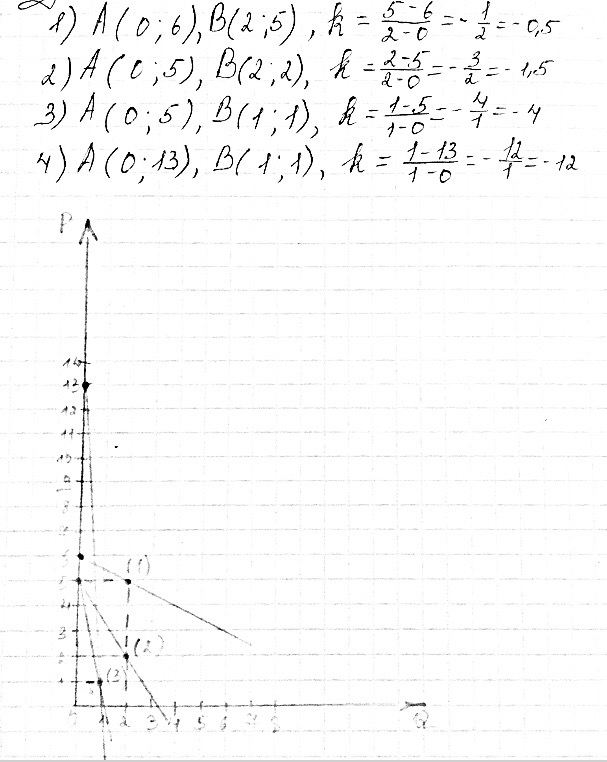 1) A(0;6), B(2;5), k = \frac{5-6}{2-0} = -\frac{1}{2} = -0,5
2) A(0;5), B(2;2), k = \frac{2-5}{2-0} = -\frac{3}{2} = -1,5
3) A(0;5), B(1;1), k = \frac{1-5}{1-0} = -\frac{4}{1} = -4
4) A(0;13), B(1;1), k = \frac{1-13}{1-0} = -\frac{12}{1} = -12
P
14
13
12
11
10
9
8
7
6
5
(1)
4
3
2
(2)
1
(3)
1 2 3 4 5 6 7 8
Q